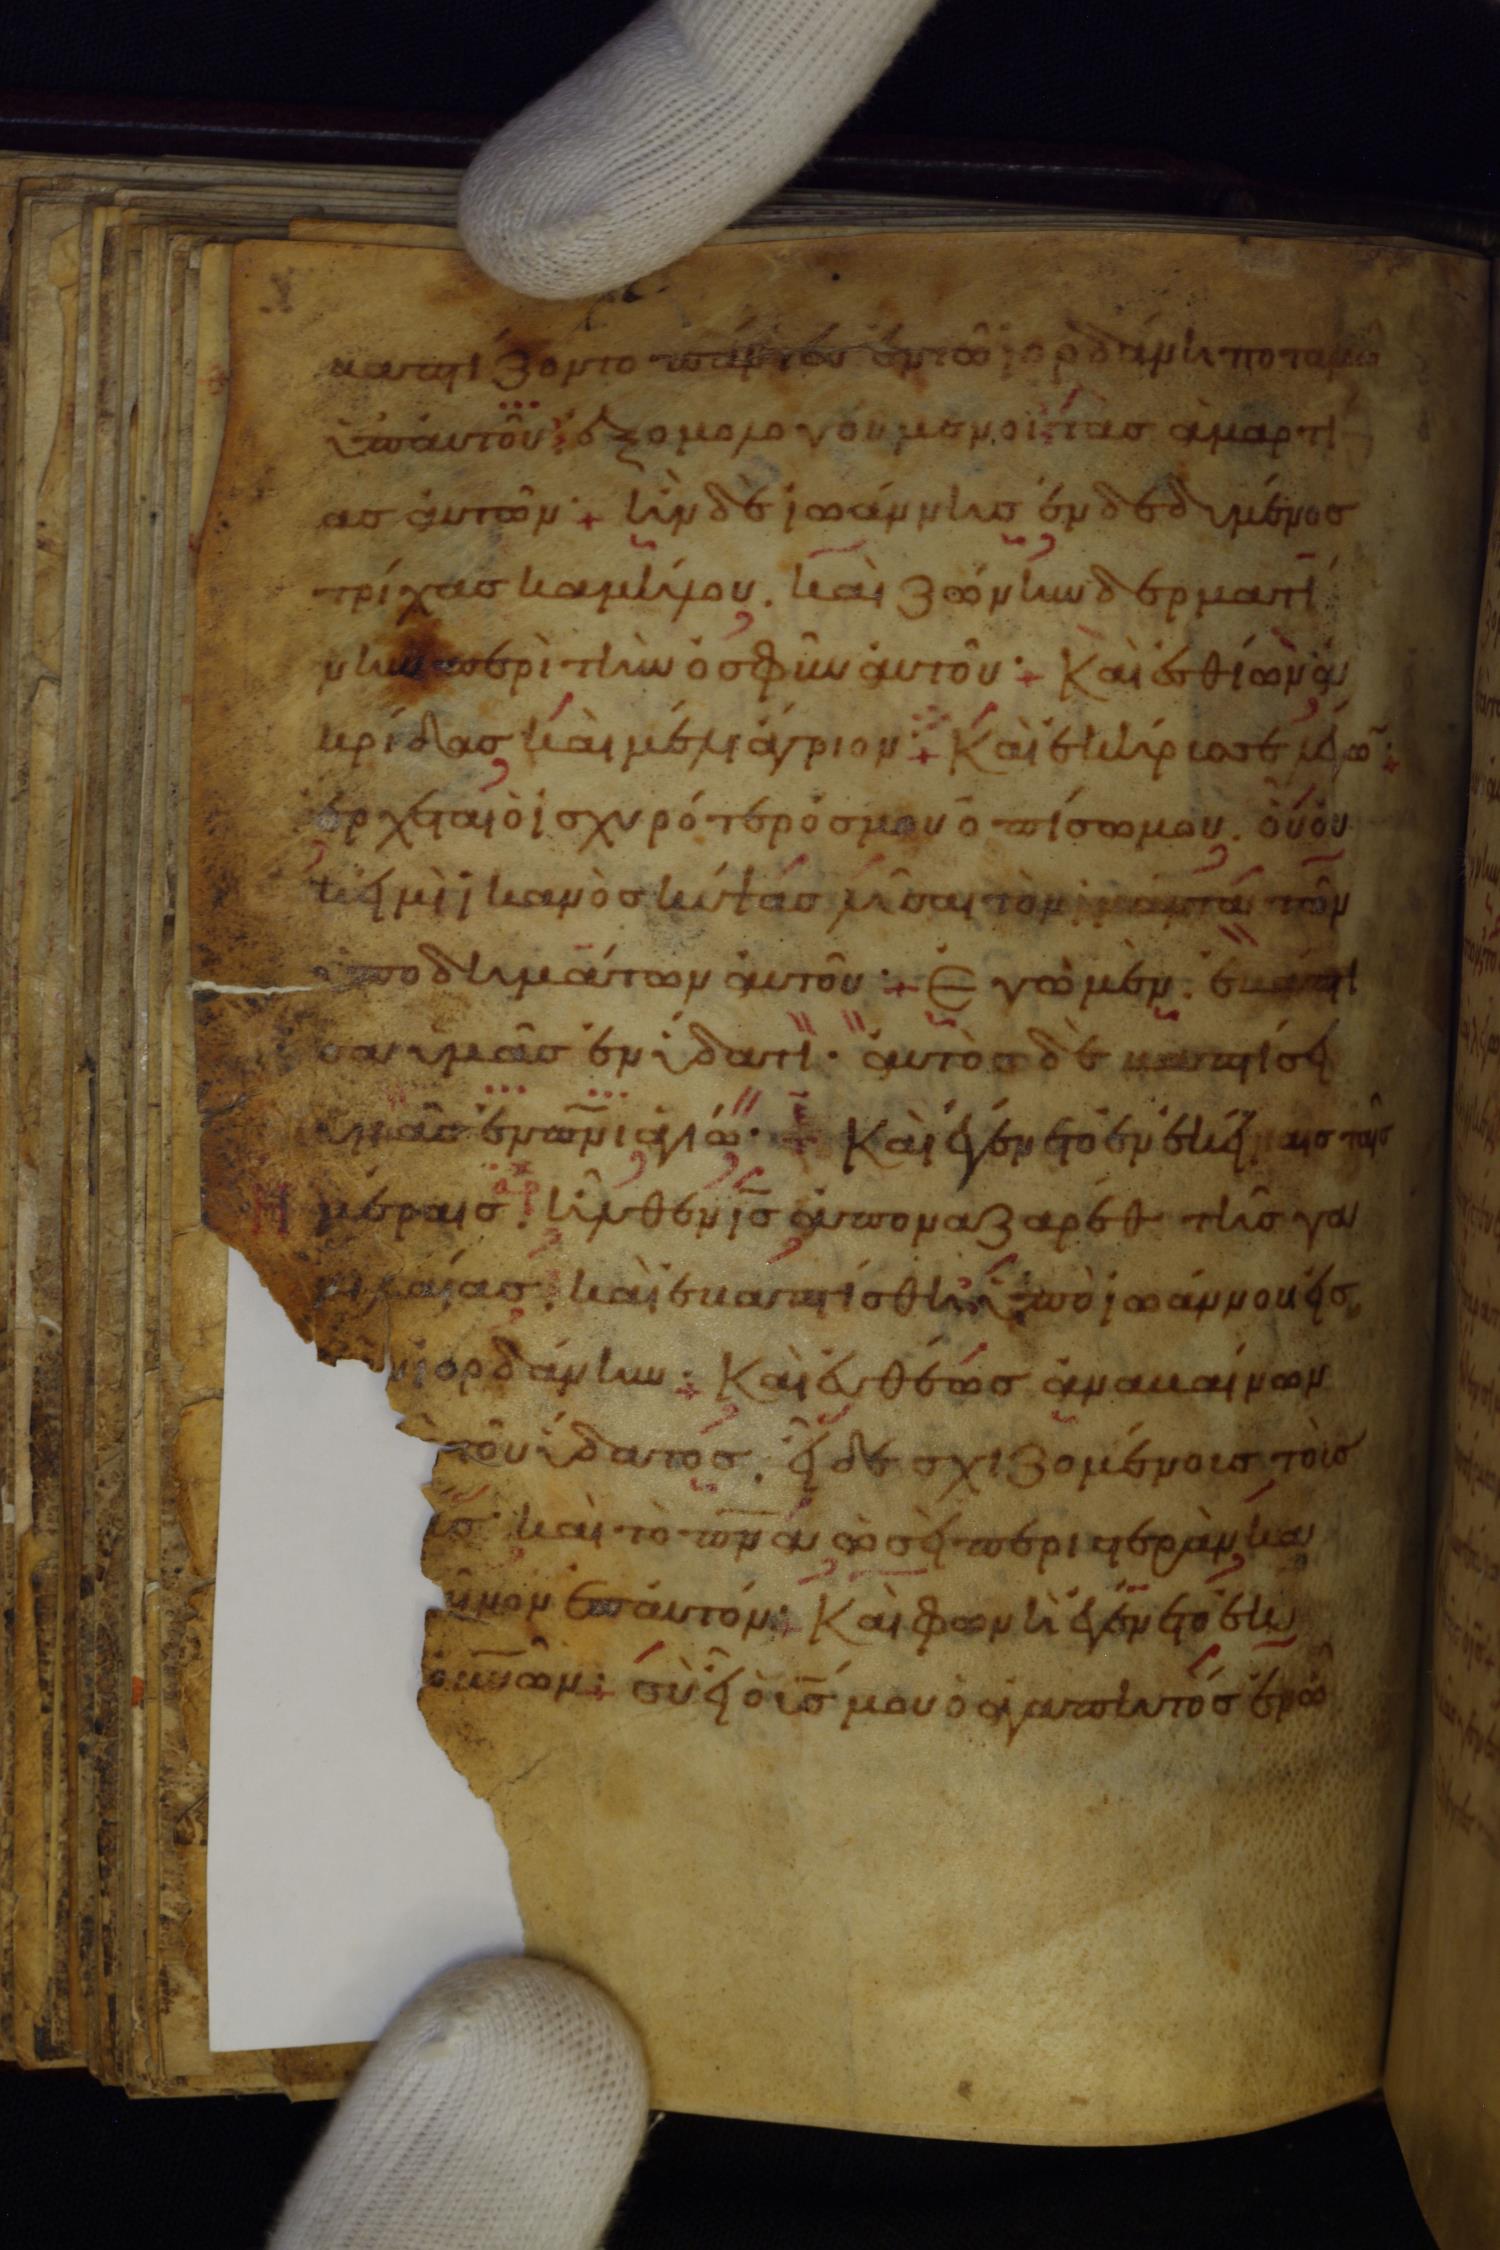 βαπτίζοντο πάντες ἐν τῶ ἰορδάνη ποταμῶ
ὑπ αυτοῦ· ἐξομολογούμενοι τὰσ ἁμαρτί
ασ ἀυτῶν· + ἦν δὲ ἰωάννησ ἐνδεδυμένοσ
τρίχασ καμήλου. καὶ ζώνην δερματί
νην περὶ τὴν ὀσφῦν ἀυτοῦ· + Καὶ ἐσθίων ἀ
κρίδασ καὶ μέλι ἄγριον· + Καὶ ἐκήρυσσε λέγω̅· +
ἔρχεται ὁ ἰσχυρότερόσ μου ὀπίσω μου. ὁῦ ὀυ
κ εἰμὶ ἱκανὸσ κύψασ λῦσαι τὸν ἱμάντα τῶν
ὑποδημάτων ἀυτοῦ· + Ἐγὼ μὲν ἐβάπτι
σα ὑμᾶσ ἐν ὕδατι· ἀυτὸσ δὲ βαπτίσει
ὑμᾶσ ἐν πν̅ι ἁγίω· + Καὶ ἐγένετο ἐν ἐκείναισ ταῖσ
ἡμέραισ. ἦλθεν ι̅σ ἀπο ναζαρὲθ τῆσ γα
λιλαίασ. καὶ ἐβαπτίσθη ὑπὸ ἰωάννου εἰσ
ν ἰορδάνην· + Καὶ ἐυθέωσ ἀναβαίνων
ὸ τοῦ ὕδατοσ. εἶδε σχιζομένουσ τοὺσ
ὺσ καὶ τὸ πν̅α ὡσεὶ περιστερὰν κα
ῖνον ἐπ ἀυτόν· + Καὶ φωνὴ ἐγένετο ἐκ
ουν̅ῶν· + σὺ εἶ ὁ υ̅σ μου ὁ ἀγαπητόσ ἐν ὧ